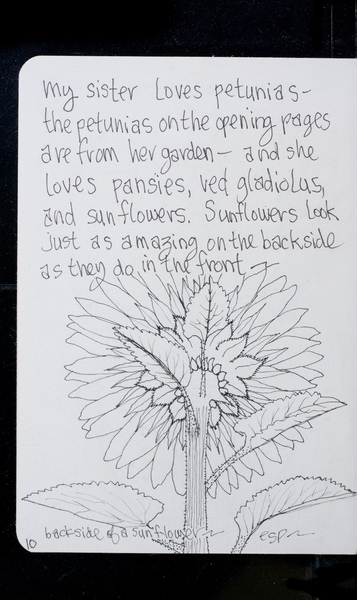 my sister loves petunias -
the petunias on the opening pages
are from her garden - and she
loves pansies, red gladiolus,
and sunflowers. Sunflowers look
just as amazing on the backside
as they do in the front
backside of a sunflower
esp
10